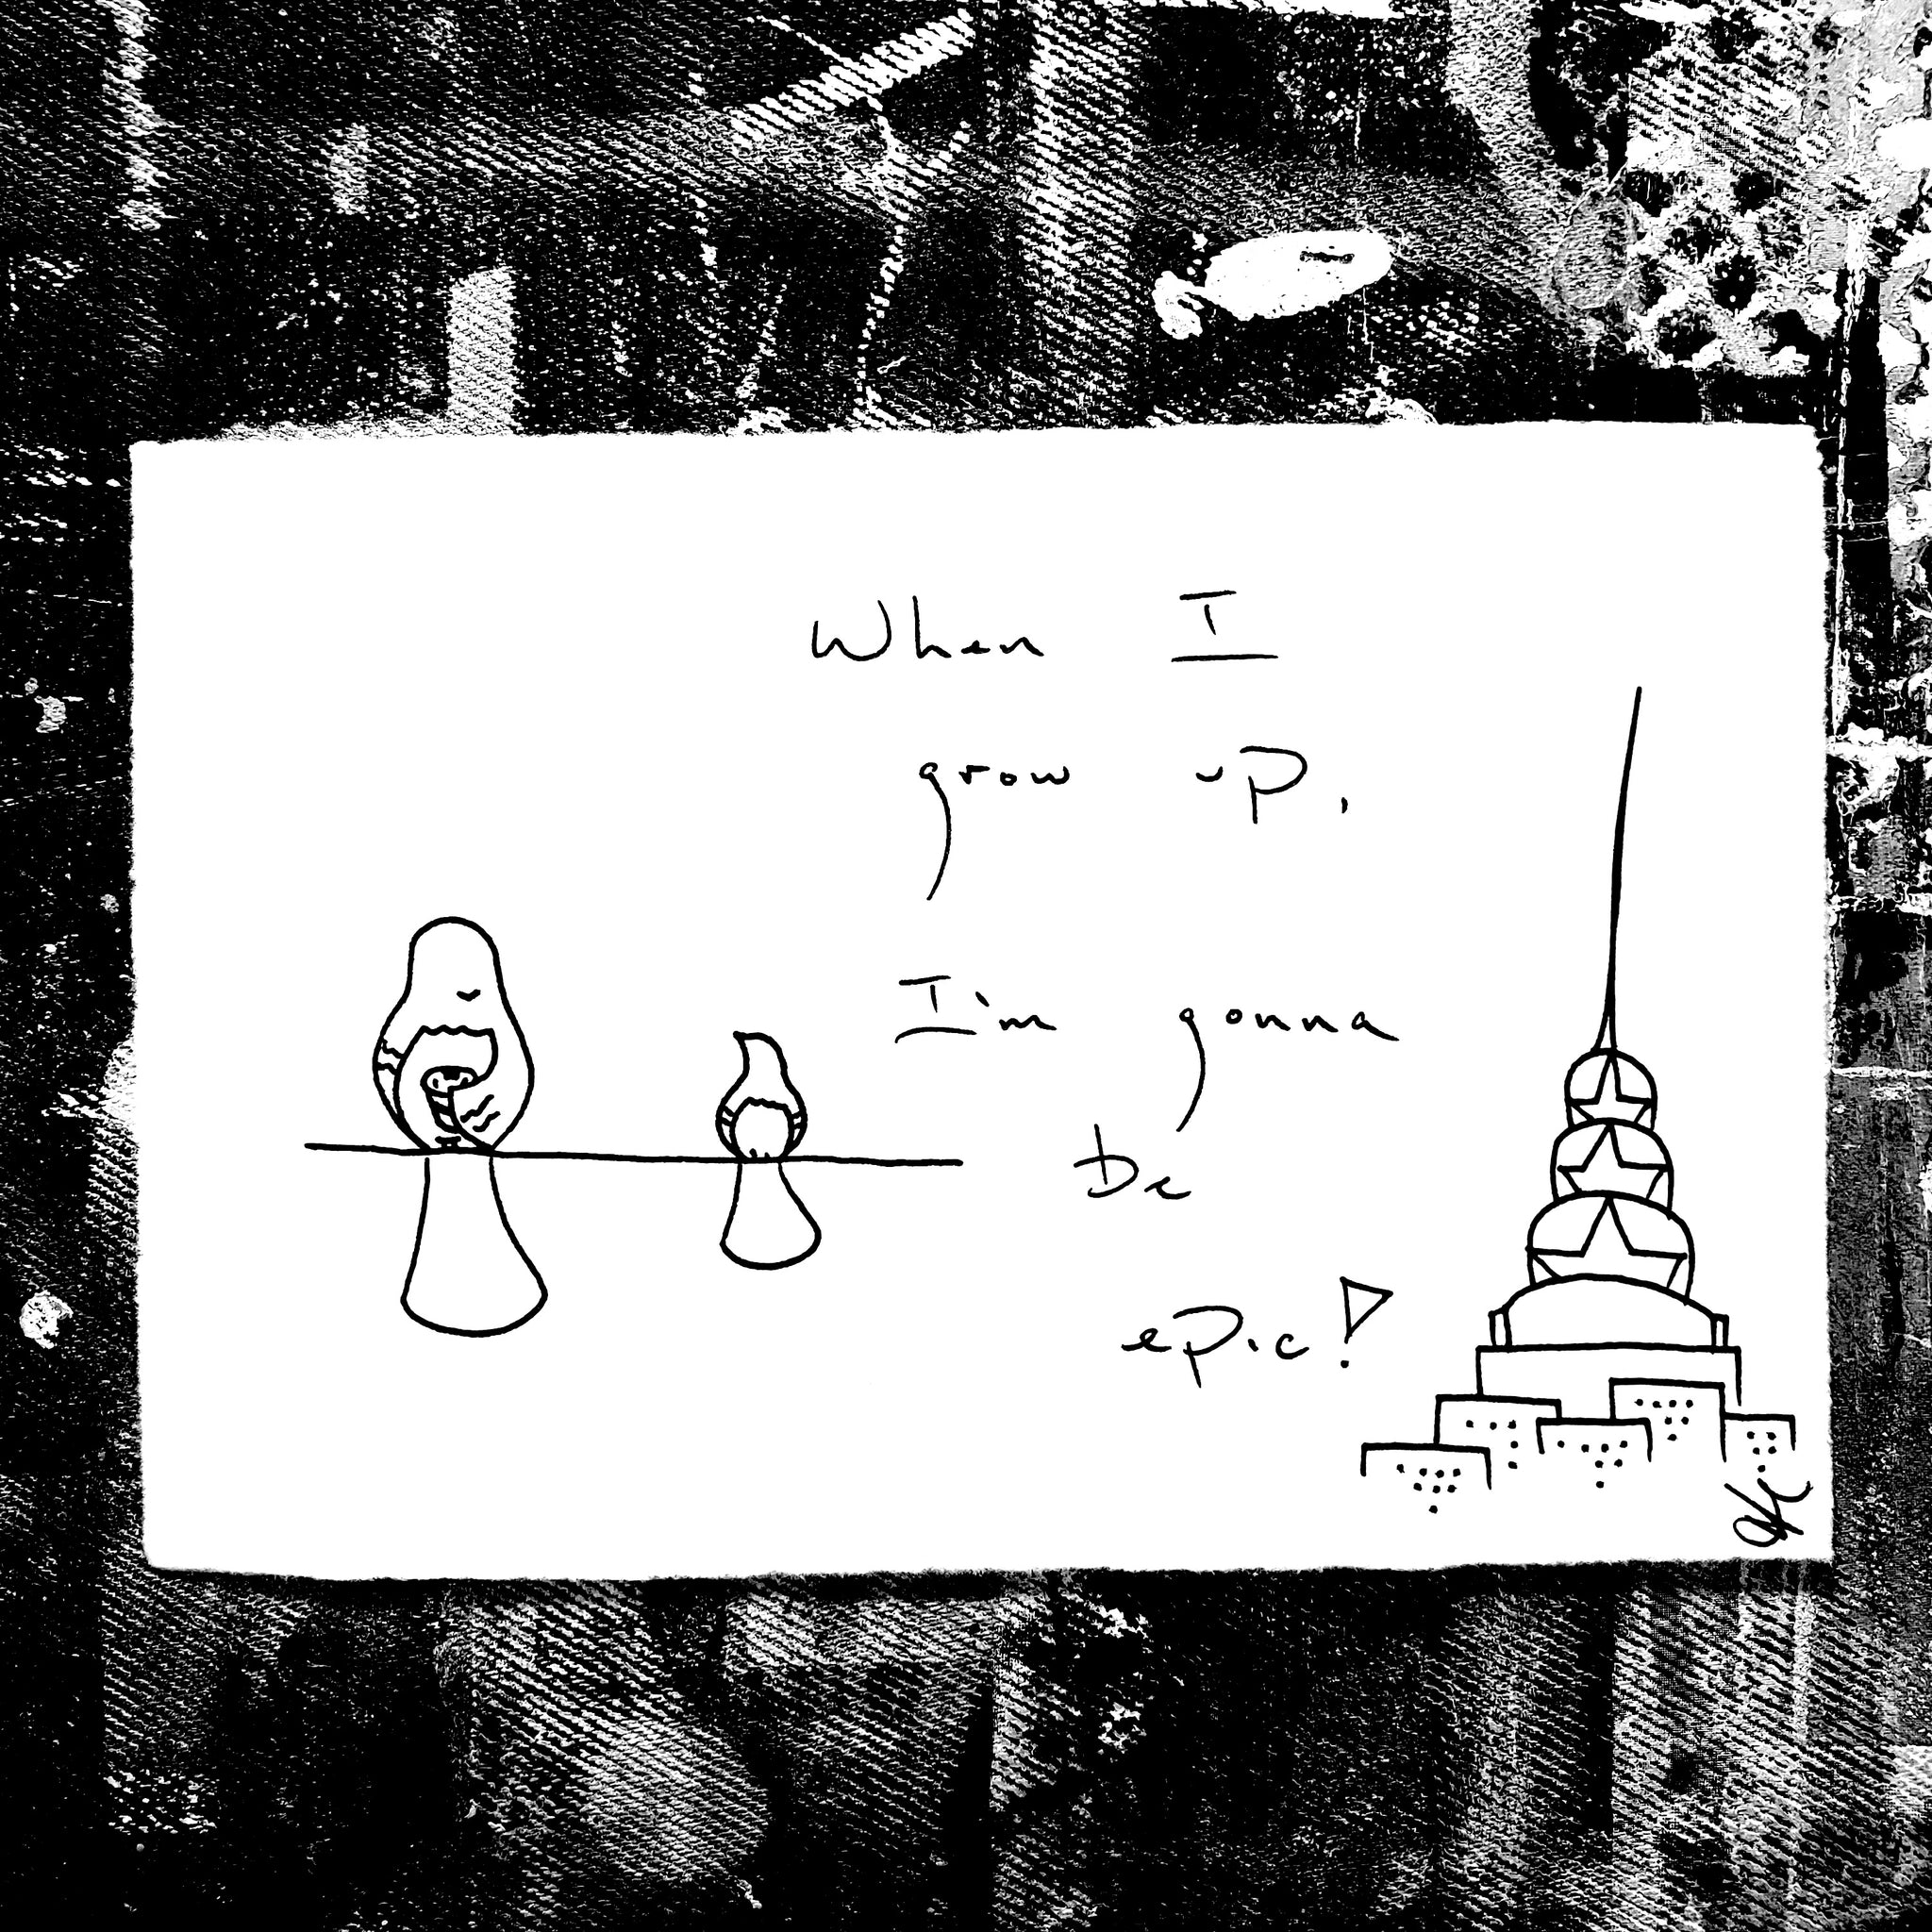 When I
grow up,
I'm gonna
be
epic!